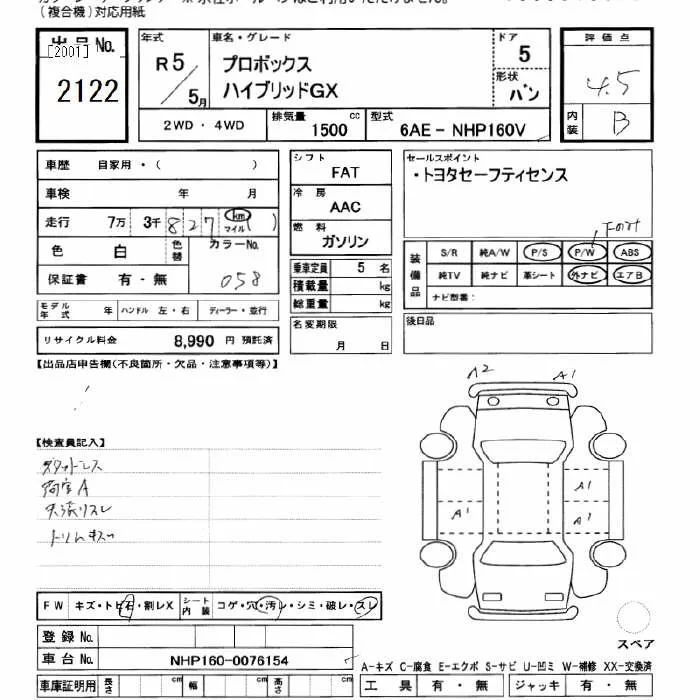 (複合機)対応用紙
出品No.
[2001]
2122
年式
R5
5月
車名・グレード
プロボックス
ハイブリッドGX
ドア
5
形状
バン
評価点
4.5
内装
B
2WD・4WD
排気量
1500
cc
型式
6AE-NHP160V
車歴 自家用・( )
車検 年 月
走行 7万 3千 827 km マイル ( )
色 白 色替 カラーNo.
058
保証書 有・無
モデル年式 年 ハンドル 左・右 ディーラー・並行
リサイクル料金 8,990 円 預託済
シフト
FAT
冷房
AAC
燃料
ガソリン
乗車定員 5 名
積載量 kg
総重量 kg
名変期限
月 日
セールスポイント
・トヨタセーフティセンス
Front
装備品
S/R 純A/W P/S P/W ABS
純TV 純ナビ 革シート 外ナビ エアB
ナビ型番:
後日品
【出品店申告欄(不良箇所・欠品・注意事項等)】
【検査員記入】
荷室A
トリムキズ
A2 A1
A1
A1 A1
FW キズ・トビ石・割レX シート内装 コゲ・穴・汚レ・シミ・破レ・スレ
登録No.
車台No. NHP160-0076154
車庫証明用 長さ cm 幅 cm 高さ cm
スペア
A-キズ C-腐食 E-エクボ S-サビ U-凹ミ W-補修 XX-交換済
工具 有・無 ジャッキ 有・無